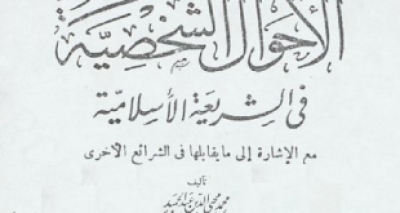 الأحوال الشخصية
في الشريعة الإسلامية
مع الإشارة إلى ما يقابلها في الشرائع الأخرى
تأليف
محمد محيي الدين عبد الحميد